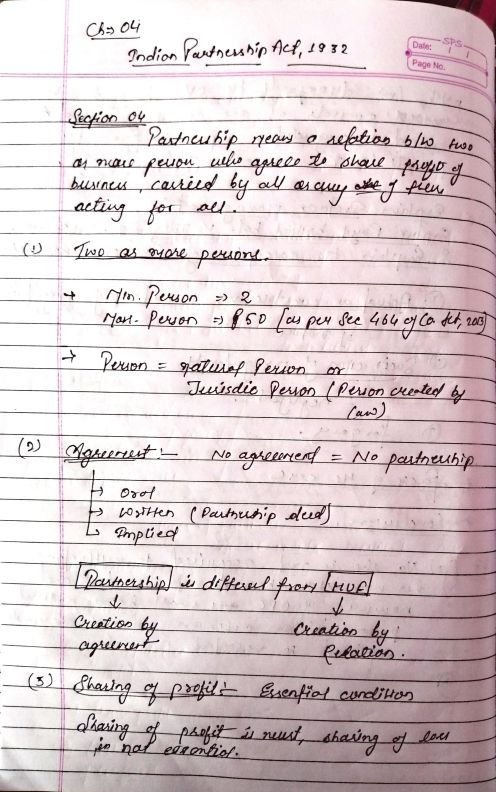 Ch⇒ 04
Indian Partnership Act, 1932
Date: SPS
Page No.
Section 04
Partnership means a relation b/w two
or more person who agree to share profit of
business, carried by all or any of them
acting for all.
(1) Two or more persons.
→ Min. Person ⇒ 2
Max. Person ⇒ 50 [as per Sec 464 of Co Act, 2013]
→ Person = natural Person or
Jurisdic Person (Person created by
law)
(2) Agreement :- No agreement = No partnership
→ Oral
→ Written (Partnership deed)
→ Implied
Partnership is different from HUF
↓ ↓
Creation by Creation by
agreement Relation.
(3) Sharing of profit :- Essential condition
Sharing of profit is must, sharing of loss
is not essential.